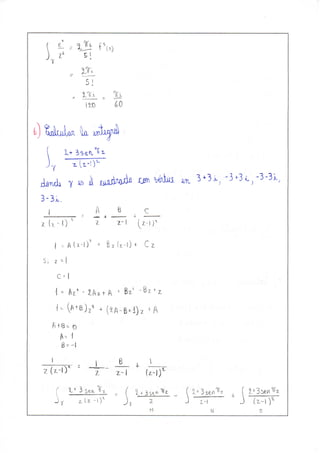 ∫_γ e^z / z^6 = 2πi / 5! f^5(z)
= 2πi / 5!
= 2πi / 120 = πi / 60
6) Calcular la integral
∫_γ (2+3sen πz) / (z(z-1)²)
donde γ es el cuadrado con vértices en 3+3i, -3+3i, -3-3i,
3-3i.
1 / (z(z-1)²) = A/z + B/(z-1) + C/(z-1)²
1 = A(z-1)² + Bz(z-1) + Cz
Si z=1
C=1
1 = Az² - 2Az + A + Bz² - Bz + z
1 = (A+B)z² + (-2A-B+1)z + A
A+B=0
A=1
B=-1
1 / (z(z-1)²) = 1/z - B/(z-1) + 1/(z-1)²
∫_γ (2+3sen πz) / (z(z-1)²) = ∫_γ (2+3sen πz) / z - ∫ (2+3sen πz) / (z-1) + ∫ (2+3sen πz) / (z-1)²